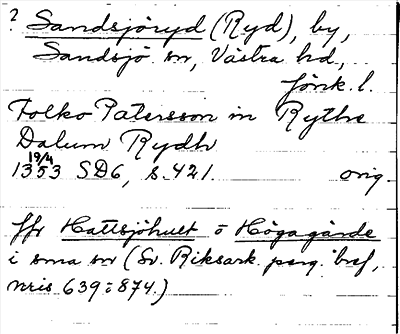 ? Sandsjöryd (Ryd), by,
Sandsjö sn, Västra hd,
Jönk. l.
Folko Patersson in Rythe
Dalum Rydh
19/4
1353 SD6, s. 421. orig.
ffr Hattsjöhult o Högagärde
i sma sn (Sv. Riksark. perg. bref,
nris 639 o 874.)